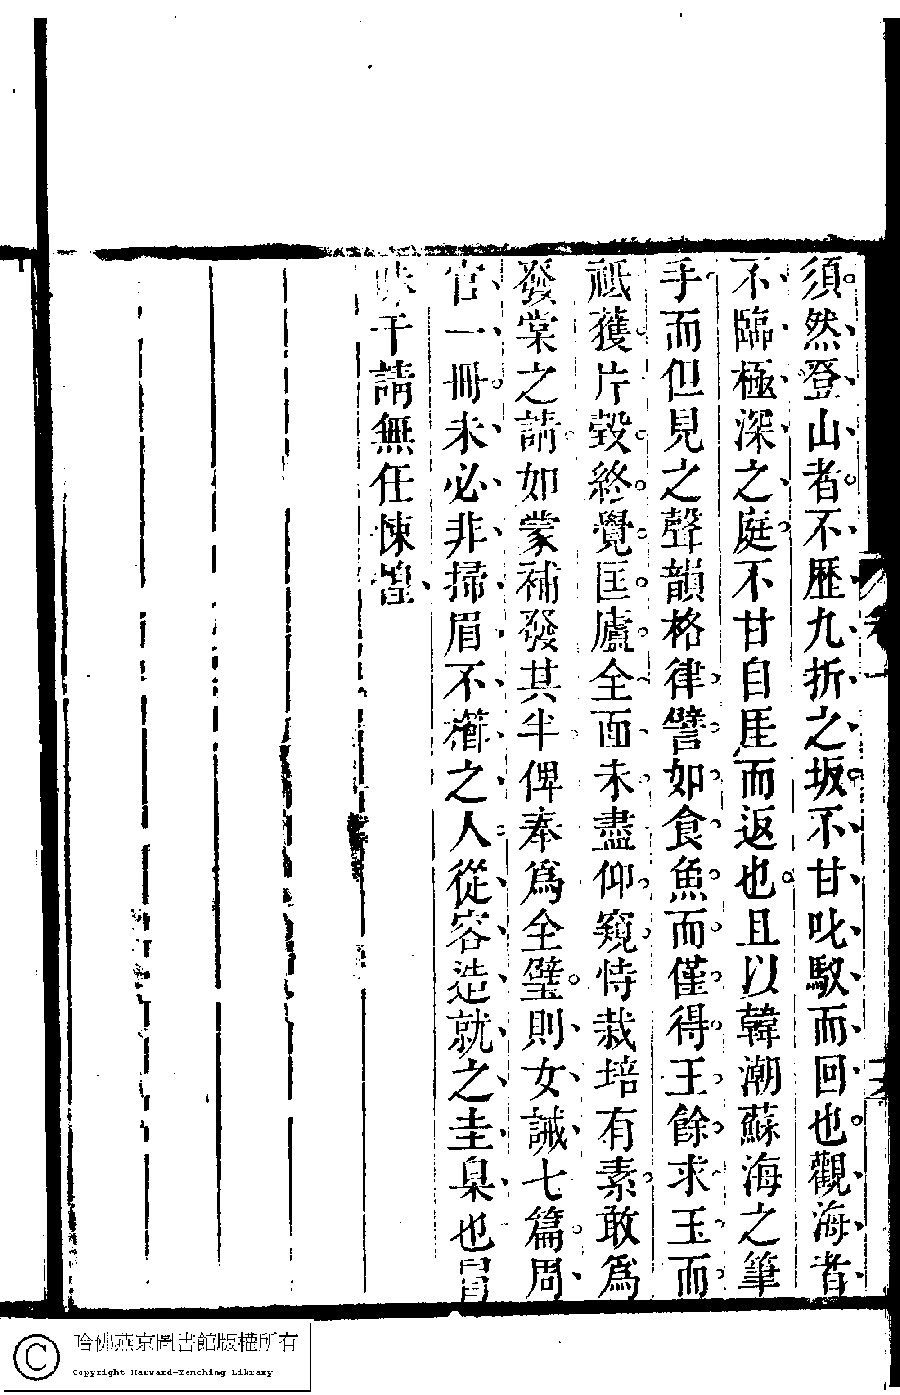 須然登山者不歷九折之坂不甘叱馭而回也觀海者
不臨極深之庭不甘自厓而返也且以韓潮蘇海之筆
手而但見之聲韻格律譬如食魚而僅得王餘求玉而
祗獲片瑴終覺匡廬全面未盡仰窺恃栽培有素敢爲
發棠之請如蒙補發其半俾奉爲全璧則女誡七篇周
官一冊未必非掃眉不櫛之人從容造就之圭臬也冒
昧干請無任悚惶
哈佛燕京圖書館版權所有
Copyright Harvard-Yenching Library